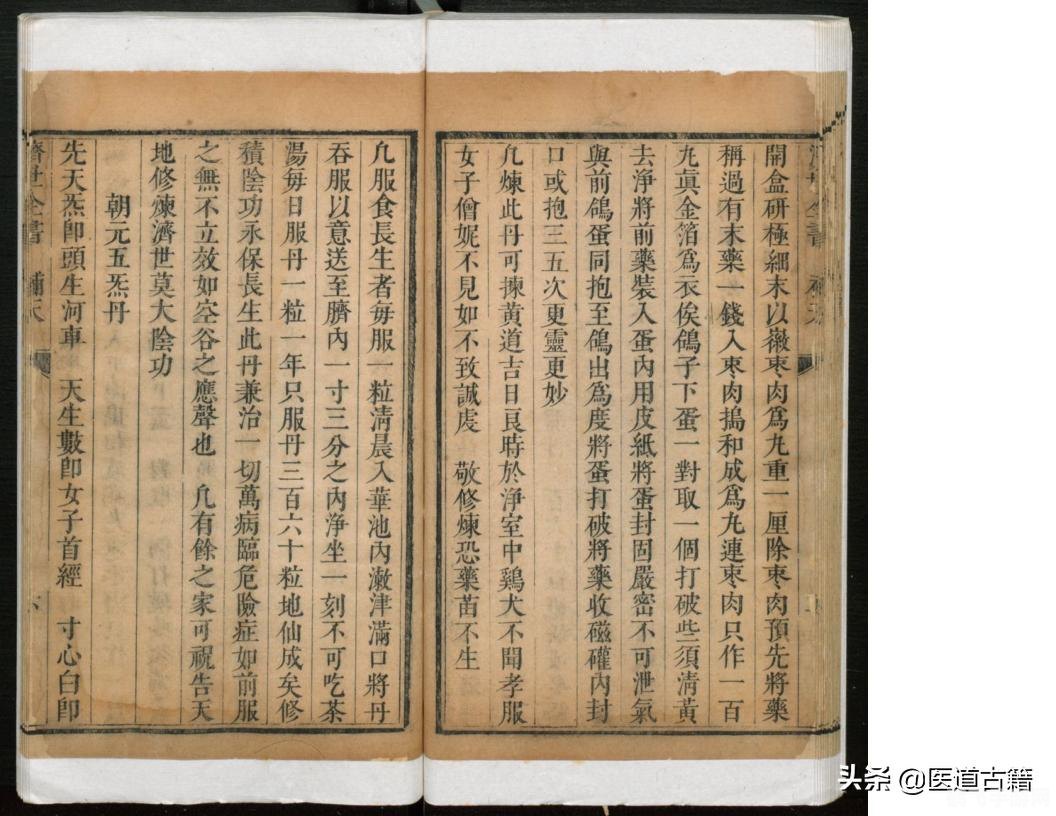 開盒研極細末以嶶枣肉為九重一厘除枣肉預先將藥
稱過有末藥一錢入枣肉搗和成為九連枣肉只作一百
九眞金箔為衣俟鴿子下蛋一對取一個打破些須清黃
去淨將前藥裝入蛋內用皮紙將蛋封固嚴密不可泄氣
與前鴿蛋同抱至鴿出為度將蛋打破將藥收磁礶內封
口或抱三五次更靈更妙
凢煉此丹可揀黄道吉日良時於淨室中鷄犬不聞孝服
女子僧妮不見如不致誠處 敬修煉恐藥苗不生
凢服食長生者毎服一粒清晨入華池內漱津滿口將丹
吞服以意送至臍內一寸三分之內淨坐一刻不可吃茶
湯毎日服丹一粒一年只服丹三百六十粒地仙成矣修
積陰功永保長生此丹兼治一切萬病臨危險症如前服
之無不立效如空谷之應聲也 凢有餘之家可祝告天
地修煉濟世莫大陰功
朝元五炁丹
先天炁卽頭生河車 天生數卽女子首經 寸心白卽
濟世全書 補天
头条 @医道古籍